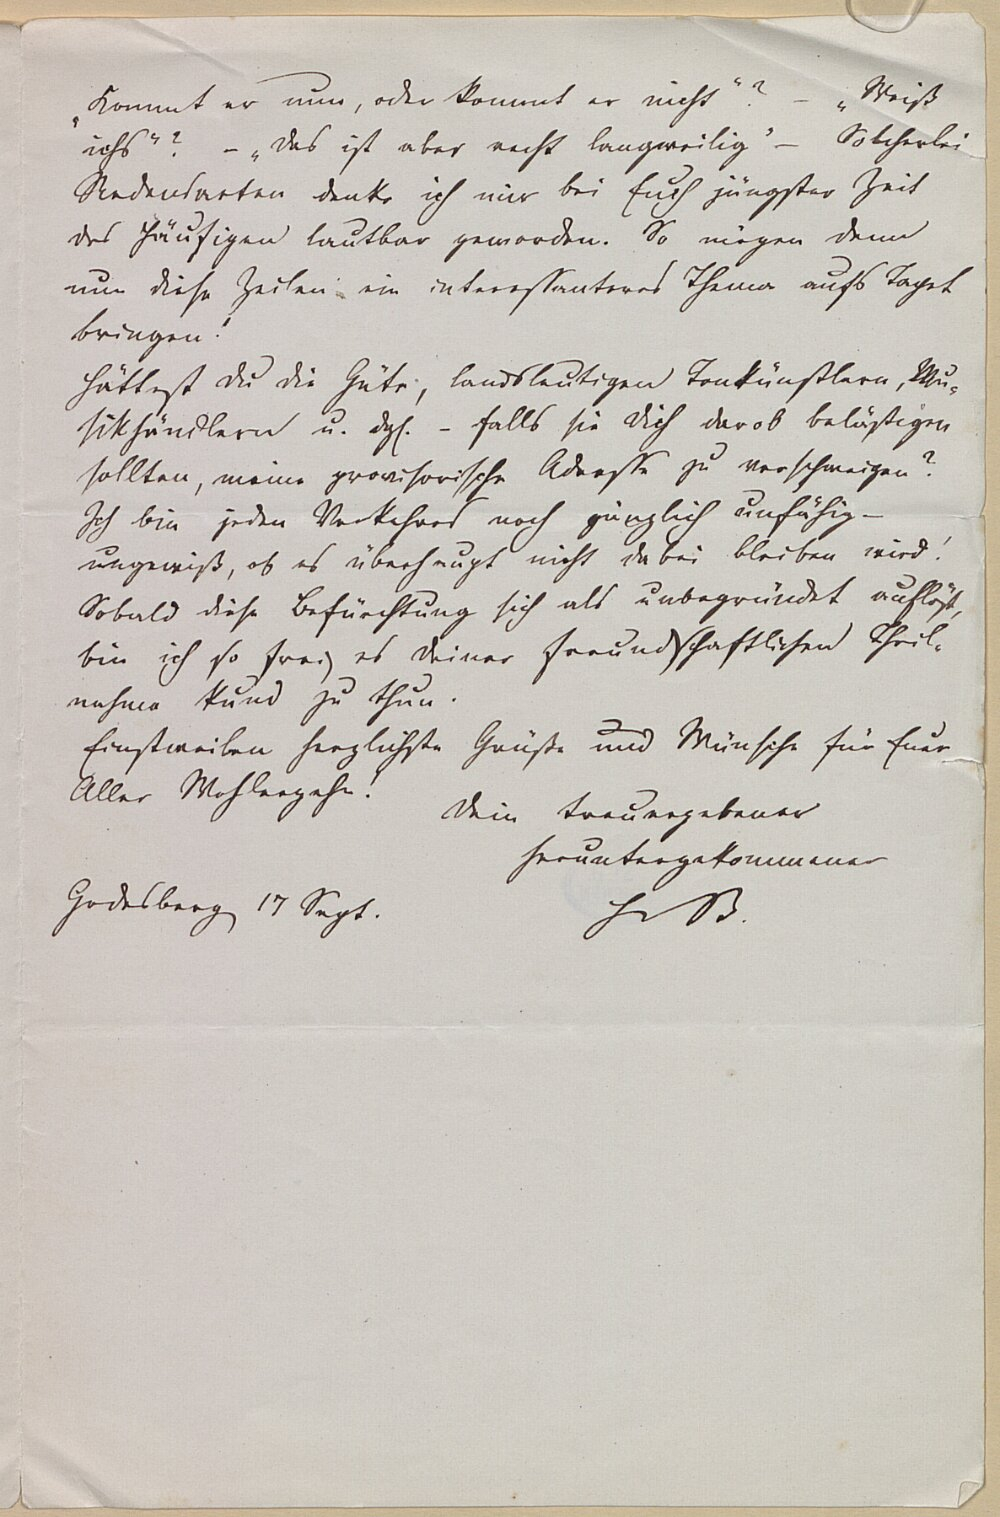 „Kommt er nun, oder kommt er nicht“? – „Weiß
ichs“? – „das ist aber recht langweilig“ – Solcherlei
Redensarten denke ich mir bei Euch jüngster Zeit
des Häufigen lautbar geworden. So mögen denn
nun diese Zeilen ein interessanteres Thema aufs Tapet
bringen!
Hättest du die Güte, landsleutigen Tonkünstlern, Mu-
sikhändlern u. dgl. – falls sie dich darob belästigen
sollten, meine provisorische Adresse zu verschweigen?
Ich bin jeden Verkehres noch gänzlich unfähig –
ungewiß, ob es überhaupt nicht dabei bleiben wird!
Sobald diese Befürchtung sich als unbegründet auflöst,
bin ich so frei es deiner freundschaftlichen Theil-
nahme kund zu thun.
Einstweilen herzlichste Grüße und Wünsche für Euer
Aller Wohlergehn!
Dein treuergebener
heruntergekommener
HvB.
Godesberg 17 Sept.